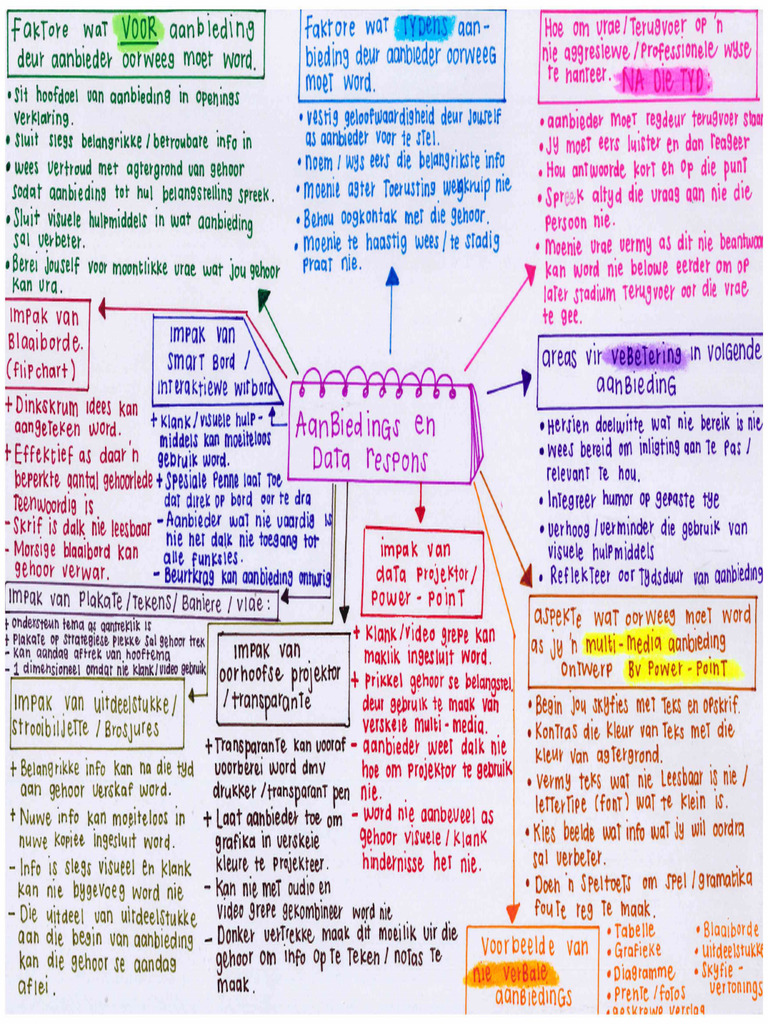 Faktore wat VOOR aanbieding
deur aanbieder oorweeg moet word.
• Sit hoofdoel van aanbieding in openings
verklaring.
• Sluit slegs belangrike/betroubare info in
• wees vertroud met agtergrond van gehoor
sodat aanbieding tot hul belangstelling spreek.
• Sluit visuele hulpmiddels in wat aanbieding
sal verbeter.
• Berei jouself voor moontlikke vrae wat jou gehoor
kan vra.
Faktore wat TYDENS aan-
bieding deur aanbieder oorweeg
moet word.
• vestig geloofwaardigheid deur jouself
as aanbieder voor te stel.
• noem/wys eers die belangrikste info
• Moenie agter Toerusting wegkruip nie
• Behou oogkontak met die gehoor.
• Moenie te haastig wees/te stadig
praat nie.
Hoe om vrae/Terugvoer op 'n
nie aggresiewe/Professionele wyse
te hanteer. NA DIE TYD:
• aanbieder moet regdeur terugvoer staan
• Jy moet eers luister en dan reageer
• Hou antwoorde kort en op die punt
• Spreek altyd die vraag aan nie die
Persoon nie.
• Moenie vrae vermy as dit nie beantwoor
kan word nie belowe eerder om op
later stadium Terugvoer oor die vrae
te gee.
Impak van
Blaaiborde.
(flipchart)
+ Dinkskrum idees kan
aangeteken word.
+ Effektief as daar 'n
beperkte aantal gehoorlede
teenwoordig is
- Skrif is dalk nie leesbaar
- Morsige blaaibord kan
gehoor verwar.
Impak van
Smart Bord/
interaktiewe witbord
+ Klank/visuele hulp-
middels kan moeiteloos
gebruik word.
+ Spesiale Penne laat toe
dat direk op bord oor te dra
- Aanbieder wat nie vaardig is
nie het dalk nie toegang tot
alle funksies.
- Beurtkrag kan aanbieding ontwrig
Aanbiedings en
Data respons
areas vir vebetering in volgende
aanbieding
• Hersien doelwitte wat nie bereik is nie
• Wees bereid om inligting aan te pas/
relevant te hou.
• Integreer humor op gepaste tye
• verhoog/verminder die gebruik van
visuele hulpmiddels
• Reflekteer oor Tydsduur van aanbieding
Impak van Plakate/Tekens/Baniere/vlae:
+ ondersteun tema as aantreklik is
+ Plakate op strategiese plekke sal gehoor trek
- kan aandag aftrek van hooftema
- 1 dimensioneel omdat nie klank/video gebruik
Impak van uitdeelstukke/
strooibiljette/Brosjures
+ Belangrikke info kan na die tyd
aan gehoor verskaf word.
+ Nuwe info kan moeiteloos in
nuwe kopieë ingesluit word.
- Info is slegs visueel en klank
kan nie bygevoeg word nie
- Die uitdeel van uitdeelstukke
aan die begin van aanbieding
kan die gehoor se aandag
aflei.
Impak van
oorhoofse projektor
/transparante
+ Transparante kan vooraf
voorberei word dmv
drukker/transparant pen
+ Laat aanbieder toe om
grafika in verskeie
kleure te projekteer.
- Kan nie met audio en
video grepe gekombineer word nie
- Donker vertrekke maak dit moeilik vir die
gehoor om info op te teken/notas te
maak.
impak van
data projektor/
Power-Point
+ Klank/video grepe kan
maklik ingesluit word.
+ Prikkel gehoor se belangstel.
deur gebruik te maak van
verskeie multi-media.
- aanbieder weet dalk nie
hoe om projektor te gebruik
nie.
- word nie aanbeveel as
gehoor visuele/klank
hindernisse het nie.
aspekte wat oorweeg moet word
as jy 'n multi-media aanbieding
ontwerp Bv Power-Point
• Begin jou skyfies met teks en opskrif.
• Kontras die kleur van teks met die
kleur van agtergrond.
• vermy teks wat nie leesbaar is nie/
lettertipe (font) wat te klein is.
• Kies beelde wat info wat jy wil oordra
sal verbeter.
• Doen 'n speltoets om spel/gramatika
foute reg te maak.
Voorbeelde van
nie verbale
aanbiedings
• Tabelle
• Grafieke
• Diagramme
• Prente/fotos
• geskrewe verslag
• Blaaiborde
• uitdeelstukke
• Skyfie-
vertonings